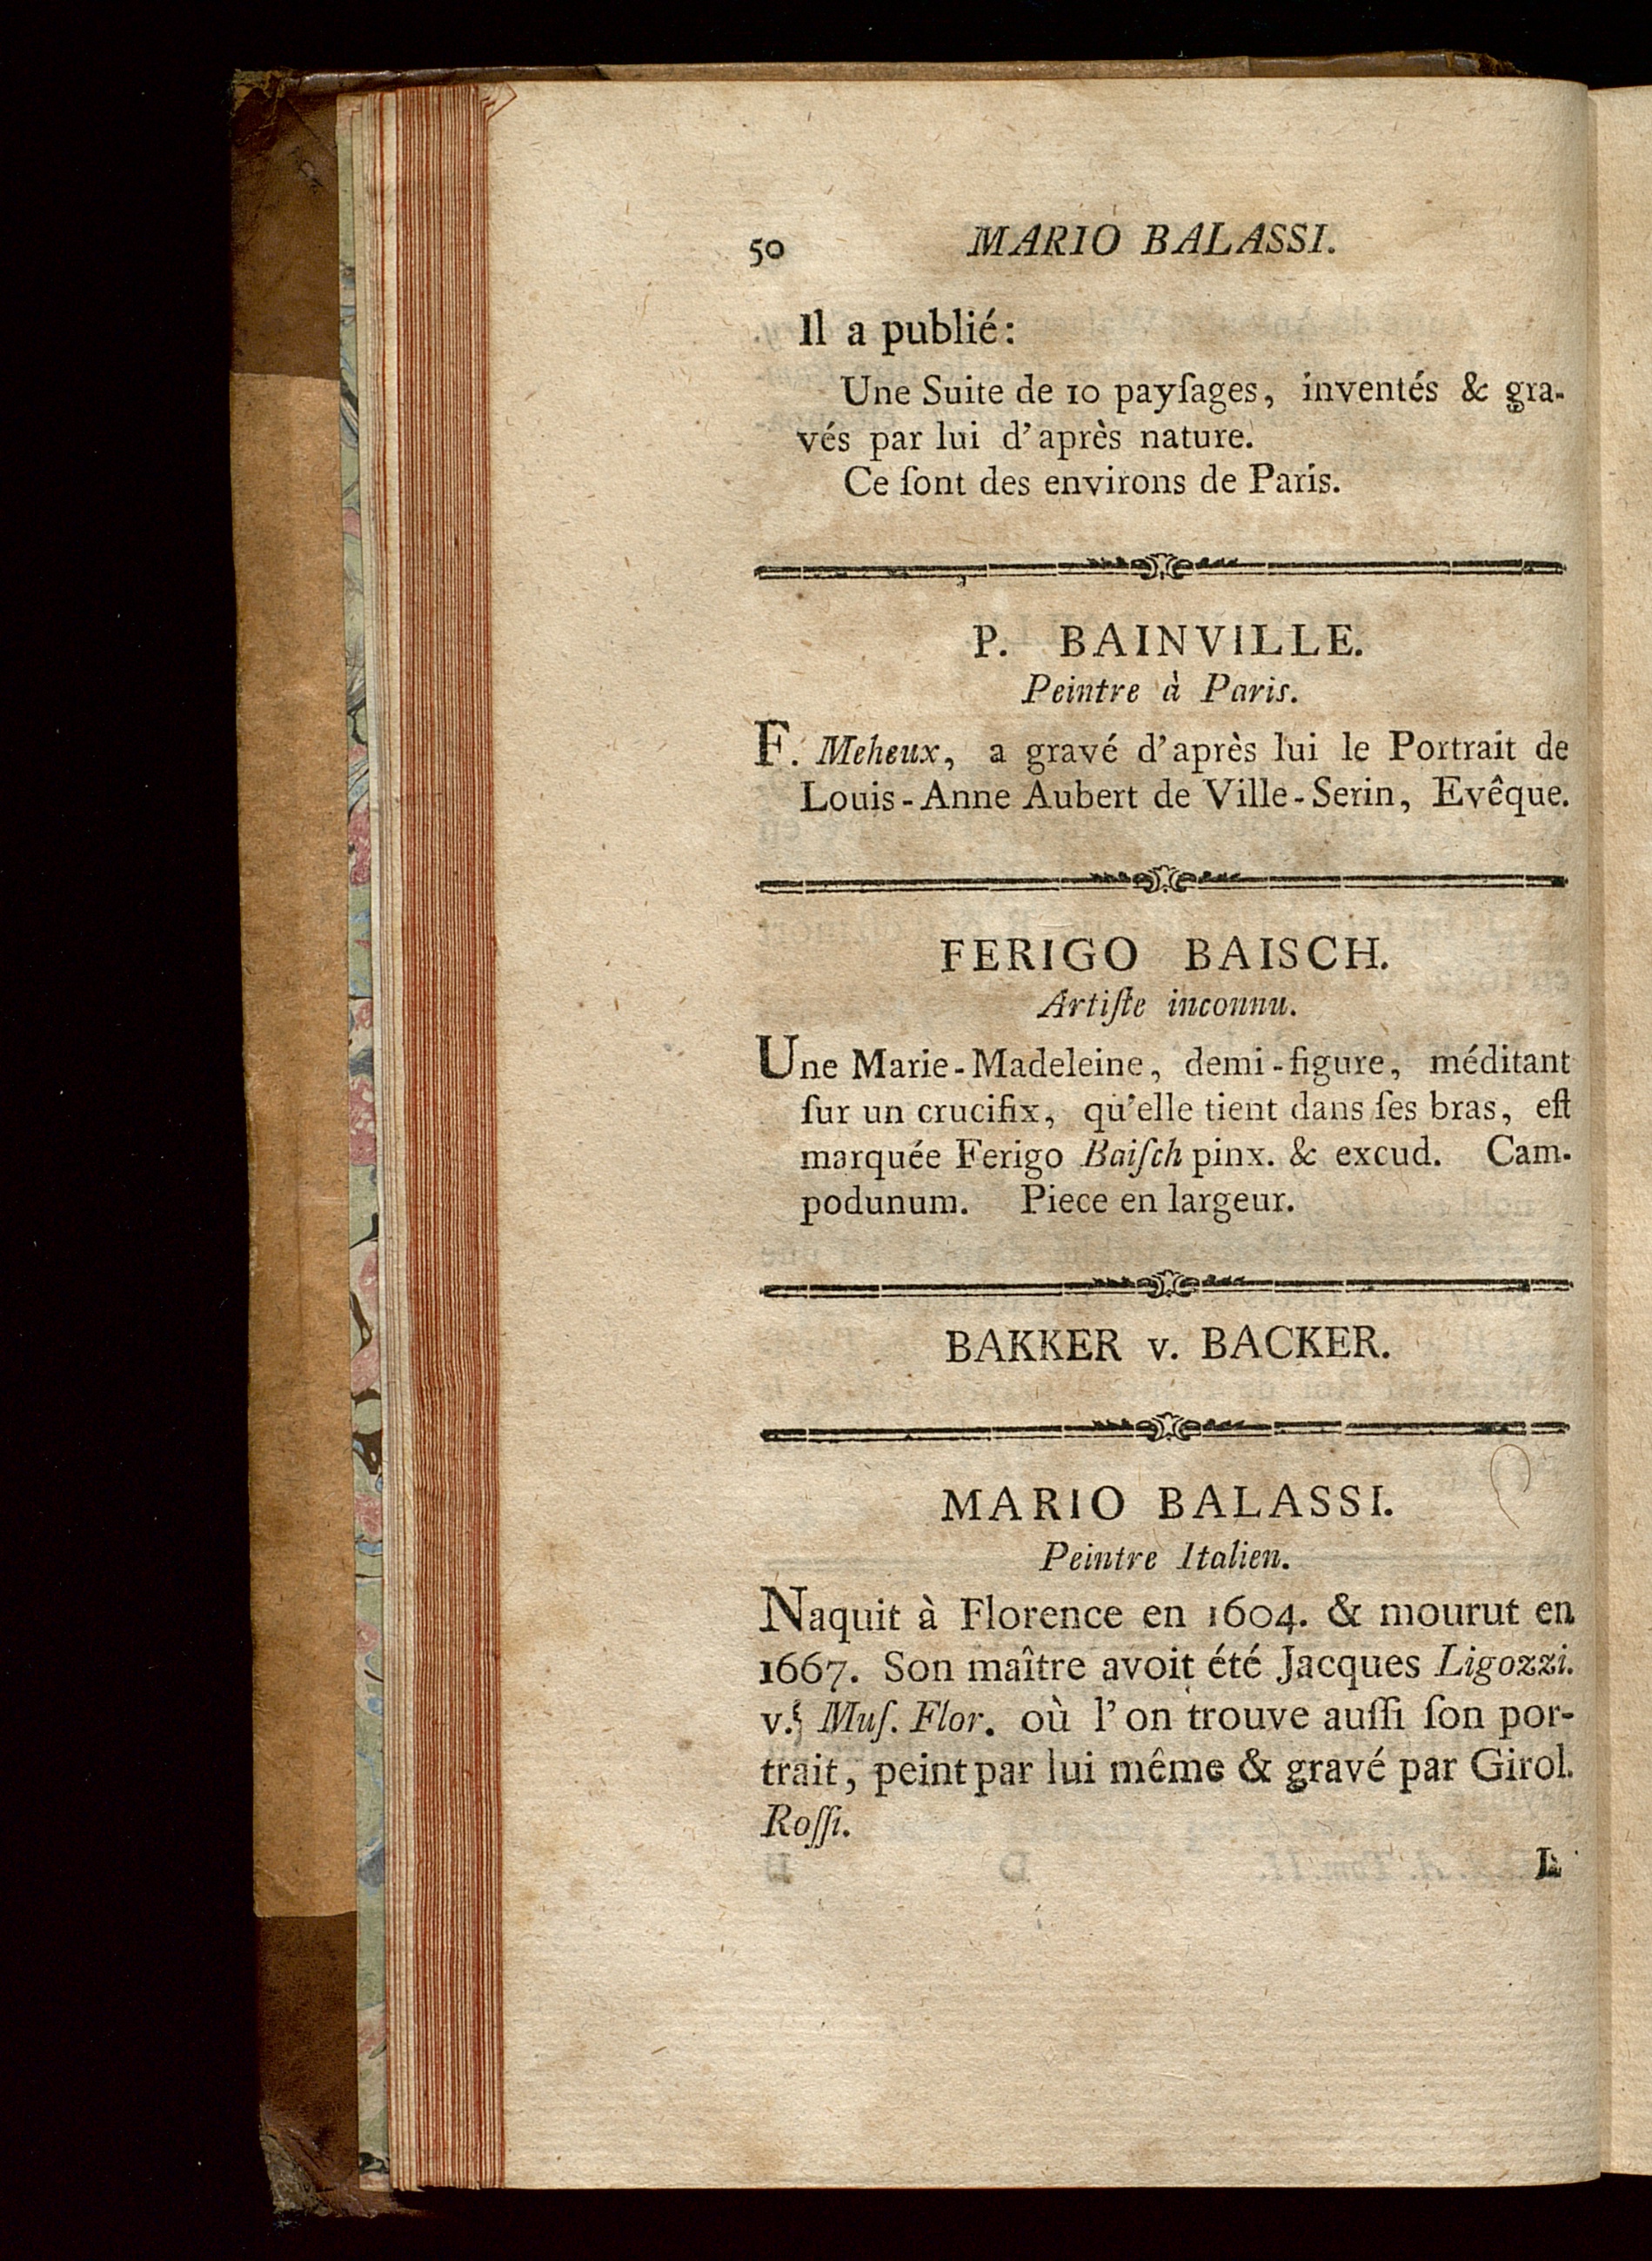 50 MARIO BALASSI.
Il a publié:
Une Suite de 10 payſages, inventés & gra-
vés par lui d'après nature.
Ce ſont des environs de Paris.
P. BAINVILLE.
Peintre à Paris.
F. Meheux, a gravé d'après lui le Portrait de
Louis-Anne Aubert de Ville-Serin, Evêque.
FERIGO BAISCH.
Artiſte inconnu.
Une Marie-Madeleine, demi-figure, méditant
ſur un crucifix, qu'elle tient dans ſes bras, eſt
marquée Ferigo Baiſch pinx. & excud. Cam-
podunum. Piece en largeur.
BAKKER v. BACKER.
MARIO BALASSI.
Peintre Italien.
Naquit à Florence en 1604. & mourut en
1667. Son maître avoit été Jacques Ligozzi.
v. Muſ. Flor. où l'on trouve auſſi ſon por-
trait, peint par lui même & gravé par Girol.
Roſſi.